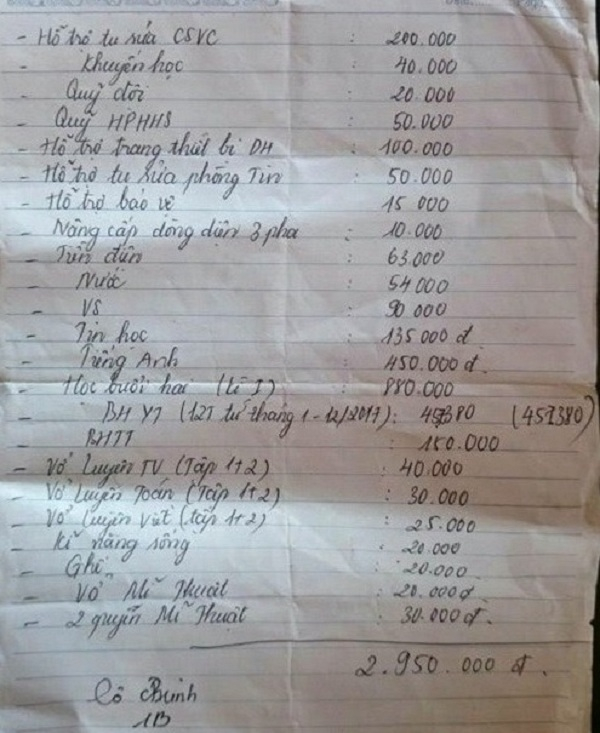 - Hỗ trợ tu sửa CSVC : 200.000
- Khuyến học : 40.000
- Quỹ đội : 20.000
- Quỹ HPHHS : 50.000
- Hỗ trợ trang thiết bị DH : 100.000
- Hỗ trợ tu sửa phòng Tin : 50.000
- Hỗ trợ bảo vệ : 15 000
- Nâng cấp dòng điện 3 pha : 10.000
- Tiền điện : 63.000
- Nước : 54 000
- VS : 90 000
- Tin học : 135 000 đ
- Tiếng Anh : 450.000 đ.
- Học buổi hai (kì I) : 880.000
- BH YT (12T từ tháng 1 - 12/2017) : 457380 (457380)
- BHTT : 150.000
- Vở luyện TV (Tập 1+2) : 40.000
- Vở luyện Toán (Tập 1+2) : 30.000
- Vở luyện viết (tập 1+2) : 25.000
- Kĩ năng sống : 20.000
- Ghế : 20.000
- Vở Mĩ Thuật : 20.000đ
- 2 quyển Mĩ Thuật : 30.000 đ.
2.950.000 đ.
Cô Bình
1B